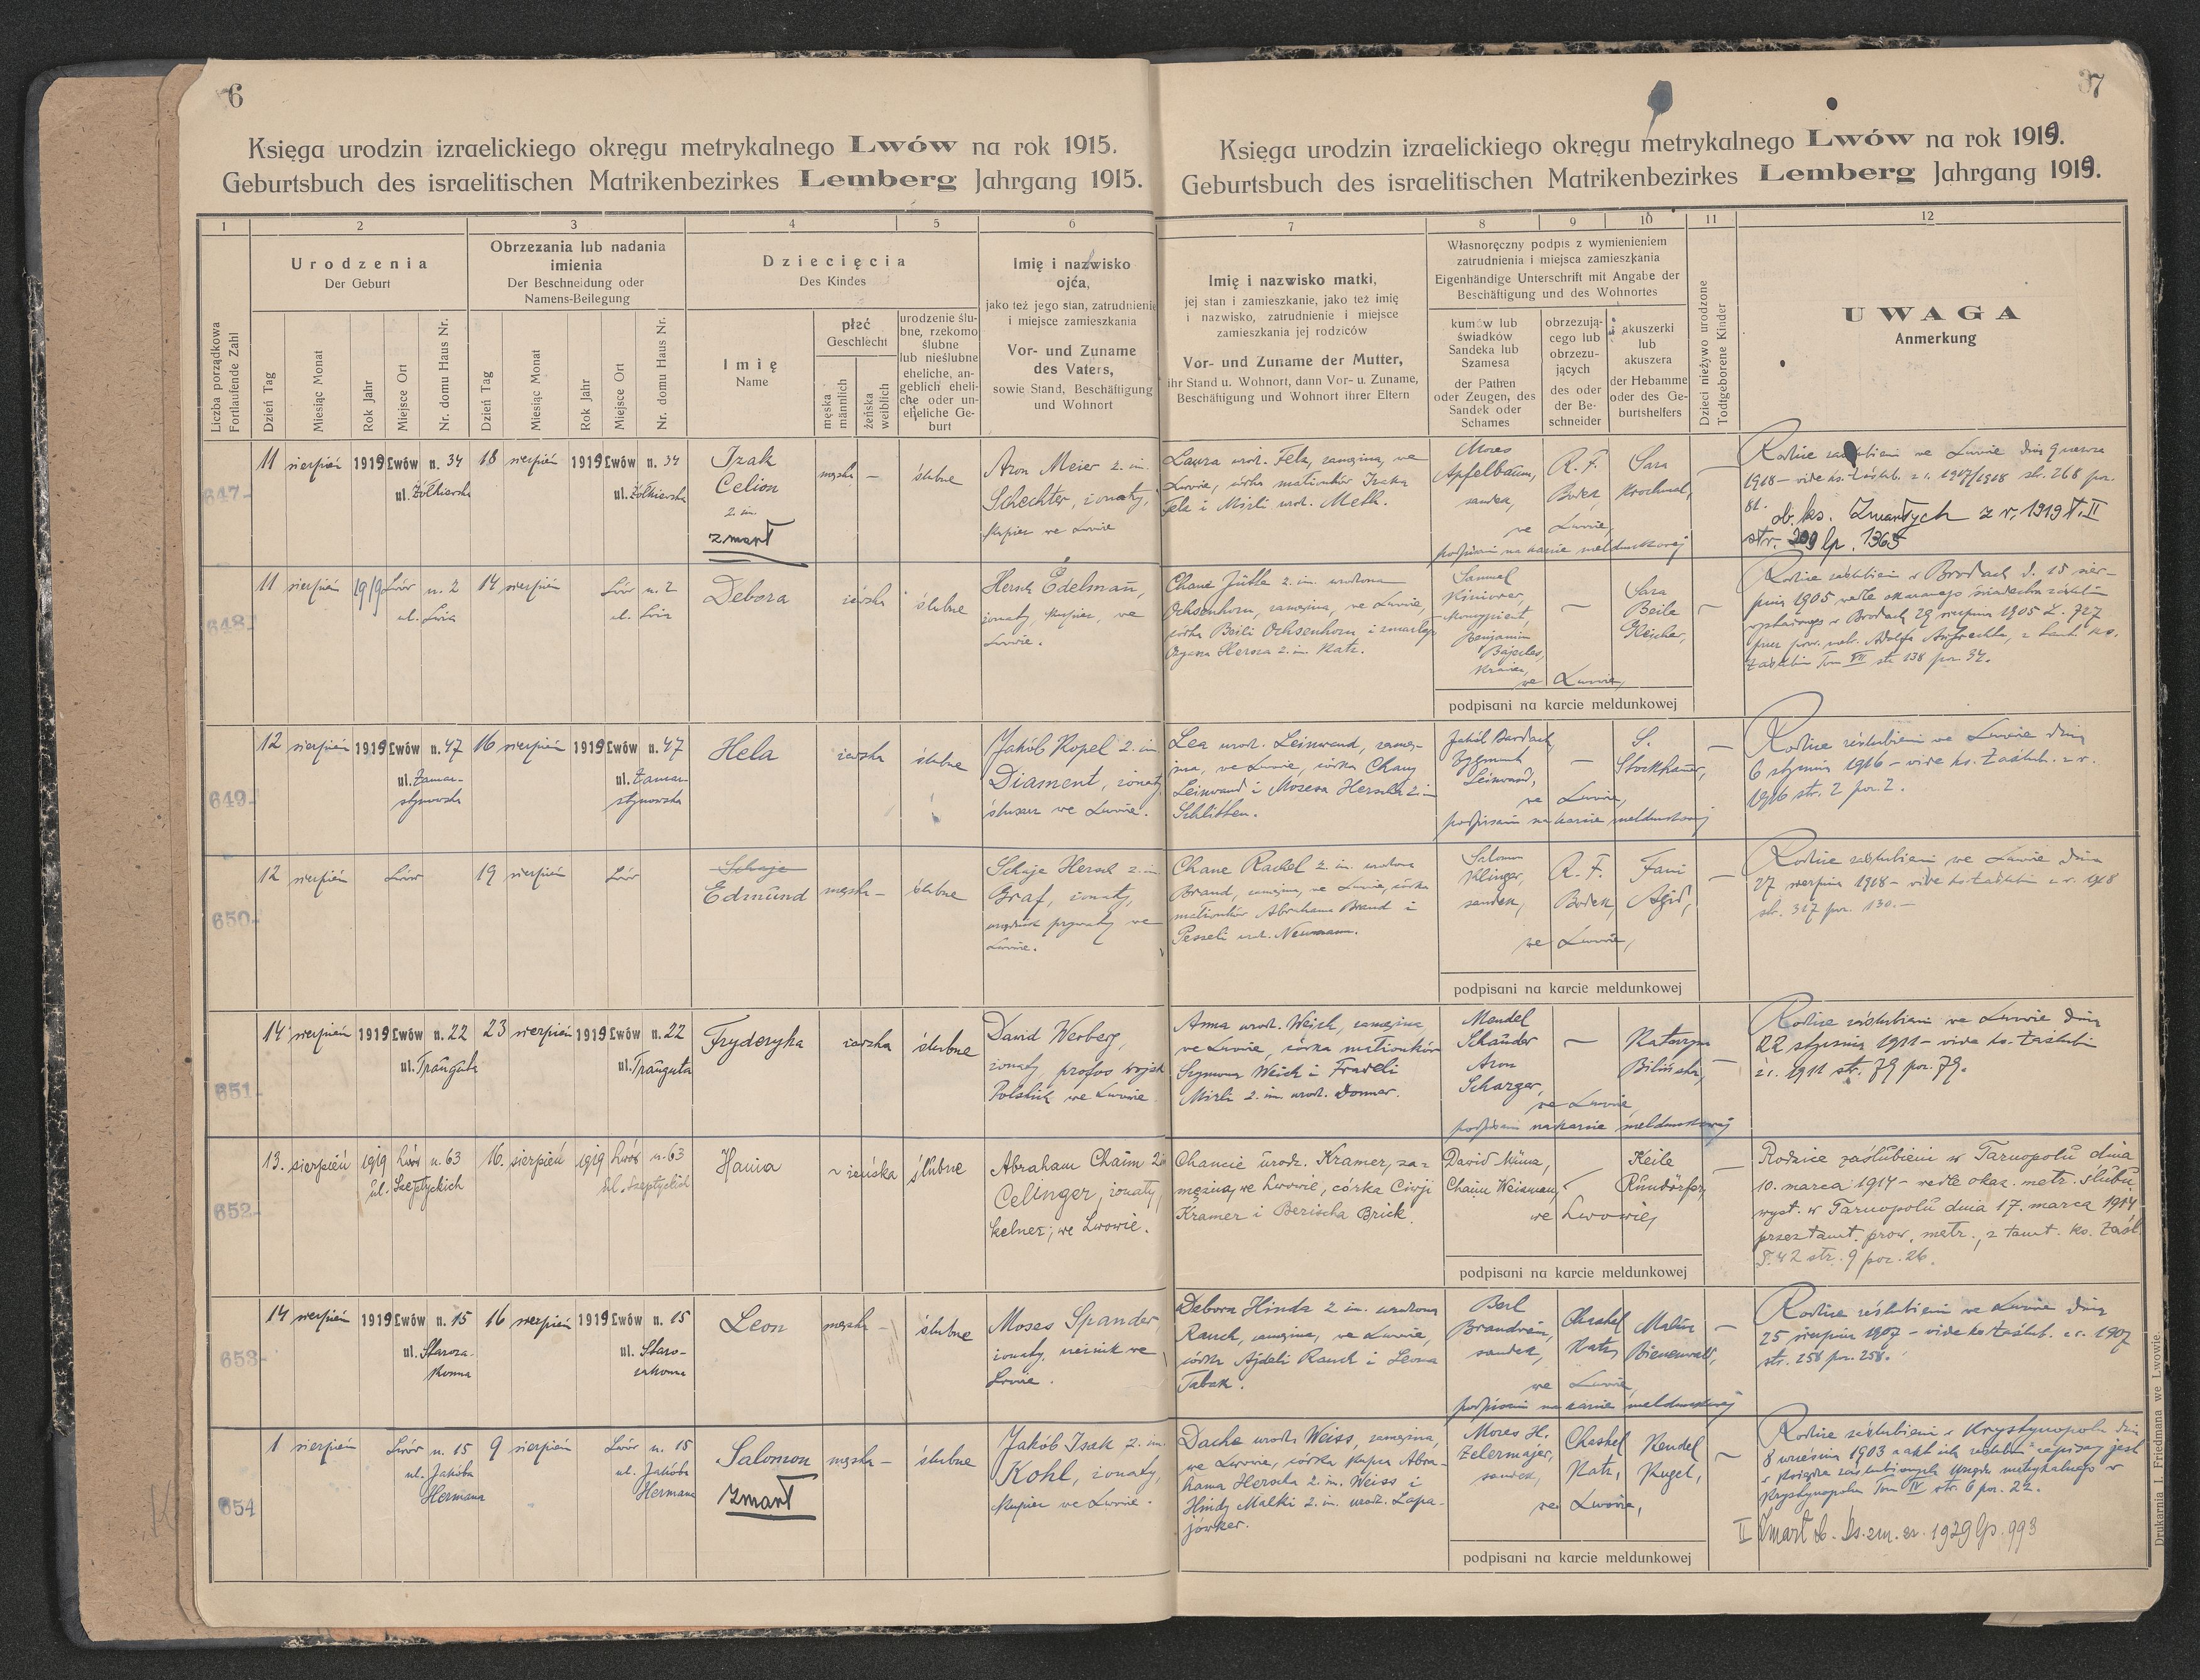 6
37
Księga urodzin izraelickiego okręgu metrykalnego Lwów na rok 1915.
Geburtsbuch des israelitischen Matrikenbezirkes Lemberg Jahrgang 1915.
Księga urodzin izraelickiego okręgu metrykalnego Lwów na rok 1919.
Geburtsbuch des israelitischen Matrikenbezirkes Lemberg Jahrgang 1919.
1
2
3
4
5
6
7
8
9
10
11
12
Liczba porządkowa
Fortlaufende Zahl
Urodzenia
Der Geburt
Dzień Tag
Miesiąc Monat
Rok Jahr
Miejsce Ort
Nr. domu Haus Nr.
Obrzezania lub nadania
imienia
Der Beschneidung oder
Namens-Beilegung
Dzień Tag
Miesiąc Monat
Rok Jahr
Miejsce Ort
Nr. domu Haus Nr.
Dziecięcia
Des Kindes
Imię
Name
płeć
Geschlecht
męska
männlich
żeńska
weiblich
urodzenie ślu-
bne, rzekomo
ślubne
lub nieślubne
eheliche, an-
geblich eheli-
che oder un-
eheliche Ge-
burt
Imię i nazwisko
ojca,
jako też jego stan, zatrudnienie
i miejsce zamieszkania
Vor- und Zuname
des Vaters,
sowie Stand, Beschäftigung
und Wohnort
Imię i nazwisko matki,
jej stan i zamieszkanie, jako też imię
i nazwisko, zatrudnienie i miejsce
zamieszkania jej rodziców
Vor- und Zuname der Mutter,
ihr Stand u. Wohnort, dann Vor- u. Zuname,
Beschäftigung und Wohnort ihrer Eltern
Własnoręczny podpis z wymienieniem
zatrudnienia i miejsca zamieszkania
Eigenhändige Unterschrift mit Angabe der
Beschäftigung und des Wohnortes
kumów lub
świadków
Sandeka lub
Szamesa
der Pathen
oder Zeugen, des
Sandek oder
Schames
obrzezują-
cego lub
obrzezu-
jących
des oder
der Be-
schneider
akuszerki
lub
akuszera
der Hebamme
oder des Ge-
burtshelfers
Dzieci nieżywo urodzone
Todtgeborene Kinder
UWAGA
Anmerkung
647
11 sierpień 1919 Lwów n. 34 18 sierpień 1919 Lwów n. 34
ul. Żółkiewska ul. Żółkiewska
Izak
Celion
2. im.
zmarł
męska — ślubne
Aron Meier 2. im.
Schechter, żonaty,
kupiec we Lwowie
Laura urodz. Fela, zamężna, we
Lwowie, córka małżonków Izaka
Fela i Mirli urodz. Melk.
Moses
Apfelbaum,
sandek,
R. F.
Bodek,
Sara
Krochmal,
we Lwowie,
podpisani na karcie meldunkowej
Rodzice zaślubieni we Lwowie dnia 9 marca
1918 — vide ks. zaślub. z r. 1917/1918 str. 268 poz.
81. ob. ks. Zmarłych z r. 1919 t. II
str. 209 lp. 1365
648
11 sierpień 1919 Lwów n. 2 14 sierpień Lwów n. 2
Debora
żeńska ślubne
Hersch Edelmann,
żonaty, kupiec, we
Lwowie.
Chane Jütte 2. im. urodzona
Ochsenhorn, zamężna, we Lwowie,
córka Beili Ochsenhorn i zmarłego
Ozyasza Hersza 2. im. Katz.
Samuel
Benjamin
Sara
Beile
we Lwowie,
podpisani na karcie meldunkowej
Rodzice zaślubieni w Brodach d. 15 sier-
pnia 1905 wedle okazanego świadectwa zaślubin
wystawionego w Brodach 29 sierpnia 1905 L. 727
Zaślubin Tom VII str. 138 poz. 34.
649
12 sierpień 1919 Lwów n. 47 16 sierpień 1919 Lwów n. 47
ul. Zamar- ul. Zamar-
stynowska stynowska
Hela
żeńska ślubne
Jakób Kopel 2. im.
Diament, żonaty,
ślusarz we Lwowie.
Lea urodz. Leinwand, zamęż-
na, we Lwowie, córka Chany
Leinwand i Mosesa Herscha 2. im.
Schlitten.
Jakób Bardach,
Zygmunt
Leinwand,
S.
Stockhamer,
we Lwowie,
podpisani na karcie meldunkowej
Rodzice zaślubieni we Lwowie dnia
6 stycznia 1916 — vide ks. Zaślub. z r.
1916 str. 2 poz. 2.
650
12 sierpień Lwów 19 sierpień Lwów
Schaje
Edmund
męska — ślubne
Schaje Hersch 2. im.
Graf, żonaty,
urzędnik prywatny we
Lwowie.
Chane Rachel 2. im. urodzona
Brand, zamężna, we Lwowie, córka
małżonków Abrahama Brand i
Pesseli urodz. Neumann.
Salomon
Klinger,
sandek,
R. F.
Bodek,
Fani
Agid,
we Lwowie,
podpisani na karcie meldunkowej
Rodzice zaślubieni we Lwowie dnia
27 sierpnia 1918 — vide ks. Zaślubin z r. 1918
str. 317 poz. 130. —
651
14 sierpień 1919 Lwów n. 22 23 sierpień 1919 Lwów n. 22
ul. Traugutta ul. Traugutta
Fryderyka
żeńska ślubne
Dawid Werberg,
żonaty, profos wojsk
Polskich we Lwowie.
Anna urodz. Weich, zamężna
we Lwowie, córka małżonków
Szymona Weich i Fradeli
Mirli 2. im. urodz. Donner.
Mendel
Schauder
Aron
Scharger,
Katarzyna
Bilińska,
we Lwowie
podpisani na karcie meldunkowej
Rodzice zaślubieni we Lwowie dnia
22 stycznia 1911 — vide ks. Zaślubin
z r. 1911 str. 79 poz. 79.
652
13. sierpień 1919 Lwów n. 63 16. sierpień 1919 Lwów n. 63
ul. Szeptyckich ul. Szeptyckich
Hania
~ żeńska ślubne
Abraham Chaim 2 im
Celinger, żonaty,
kelner, we Lwowie.
Chancie urodz. Kramer, za-
mężna, we Lwowie, córka Ciwji
Kramer i Berischa Brick.
Dawid Mima,
Chaim Weisman,
Keile
Rundörfer,
we Lwowie,
podpisani na karcie meldunkowej
Rodzice zaślubieni w Tarnopolu dnia
10. marca 1914 — wedle okaz. metr. ślubu
wyst. w Tarnopolu dnia 17. marca 1914
przez tamt. prow. metr., z tamt. ks. Zaśl.
T. 42 str. 9 poz. 26.
653
14 sierpień 1919 Lwów n. 15 16 sierpień 1919 Lwów n. 15
ul. Staroza- ul. Staro-
konna zakonna
Leon
męska — ślubne
Moses Spander,
żonaty, rzeźnik we
Lwowie.
Debora Hinda 2 im. urodzona
Rauch, zamężna, we Lwowie,
córka Ajdeli Rauch i Leona
Tabak.
Berl
Brandwein,
sandek,
Chaskel
Katz,
Malka
Bienenwald,
we Lwowie,
podpisani na karcie meldunkowej
Rodzice zaślubieni we Lwowie dnia
25 sierpnia 1907 — vide ks. Zaślub. z r. 1907
str. 258 poz. 258.
654
1 sierpień Lwów n. 15 9 sierpień Lwów n. 15
ul. Jakóba ul. Jakóba
Hermana Hermana
Salomon
zmarł
męska — ślubne
Jakób Isak 2. im.
Kohl, żonaty,
kupiec we Lwowie.
Dache urodz. Weiss, zamężna,
we Lwowie, córka kupca Abra-
hama Herscha 2. im. Weiss i
Hindy Malki 2. im. urodz. Łapa-
jówker.
Moses H.
Zelermajer,
sandek,
Chaskel
Katz,
Rendel
Kugel,
we Lwowie,
podpisani na karcie meldunkowej
Rodzice zaślubieni w Krystynopolu dnia
8 września 1903 a akt ich zaślubin zapisany jest
w księdze zaślubionych urzędu metrykalnego w
Krystynopolu Tom IV str. 6 poz. 22.
II Zmarł ob. ks. zm. z r. 1929 lp. 993
Drukarnia I. Friedmana we Lwowie.